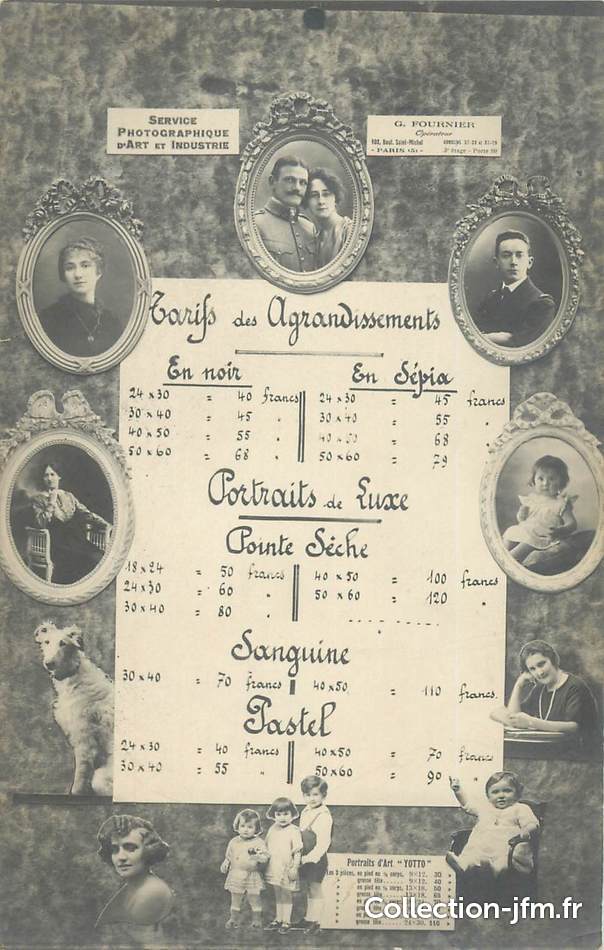 SERVICE
PHOTOGRAPHIQUE
D'ART ET INDUSTRIE
G. FOURNIER
Opérateur
103, Boul. Saint-Michel
- PARIS (5) -
3e étage - Porte
Tarifs des Agrandissements
En noir
24 x 30 = 40 francs
30 x 40 = 45 "
40 x 50 = 55 "
50 x 60 = 68 "
En Sépia
24 x 30 = 45 francs
30 x 40 = 55
40 x 50 = 68 "
50 x 60 = 79
Portraits de Luxe
Pointe Sèche
18 x 24 = 50 francs
24 x 30 = 60
30 x 40 = 80 "
40 x 50 = 100 francs
50 x 60 = 120 "
Sanguine
30 x 40 = 70 francs
40 x 50 = 110 francs.
Pastel
24 x 30 = 40 francs
30 x 40 = 55 "
40 x 50 = 70 francs
50 x 60 = 90 "
Portraits d'Art "YOTTO"
Les 3 pièces, en pied ou ½ corps. 9×12. 30
" grosse tête 9×12. 40
" en pied ou ½ corps. 13×18. 50
" grosse tête
Collection-jfm.fr